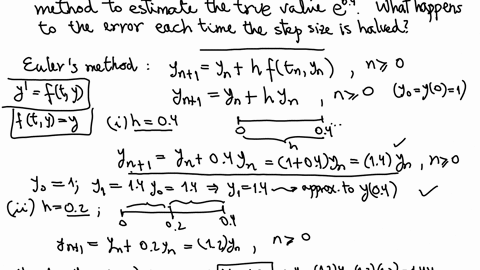 method to estimate the true value e^0.4. What happens
to the error each time the step size is halved?
Euler's method : y_{n+1} = y_n + h f(t_n, y_n) , n ≥ 0
y' = f(t,y)
y_{n+1} = y_n + h y_n , n ≥ 0 (y_0 = y(0) = 1)
f(t,y) = y
(i) h = 0.4
0 0.4 ...
h
y_{n+1} = y_n + 0.4 y_n = (1+0.4) y_n = (1.4) y_n , n ≥ 0 ✓
y_0 = 1; y_1 = 1.4 y_0 = 1.4 ⇒ y_1 = 1.4 → approx. to y(0.4) ✓
(ii) h = 0.2 ;
0 0.2 0.4
y_{n+1} = y_n + 0.2 y_n = (1.2) y_n , n ≥ 0